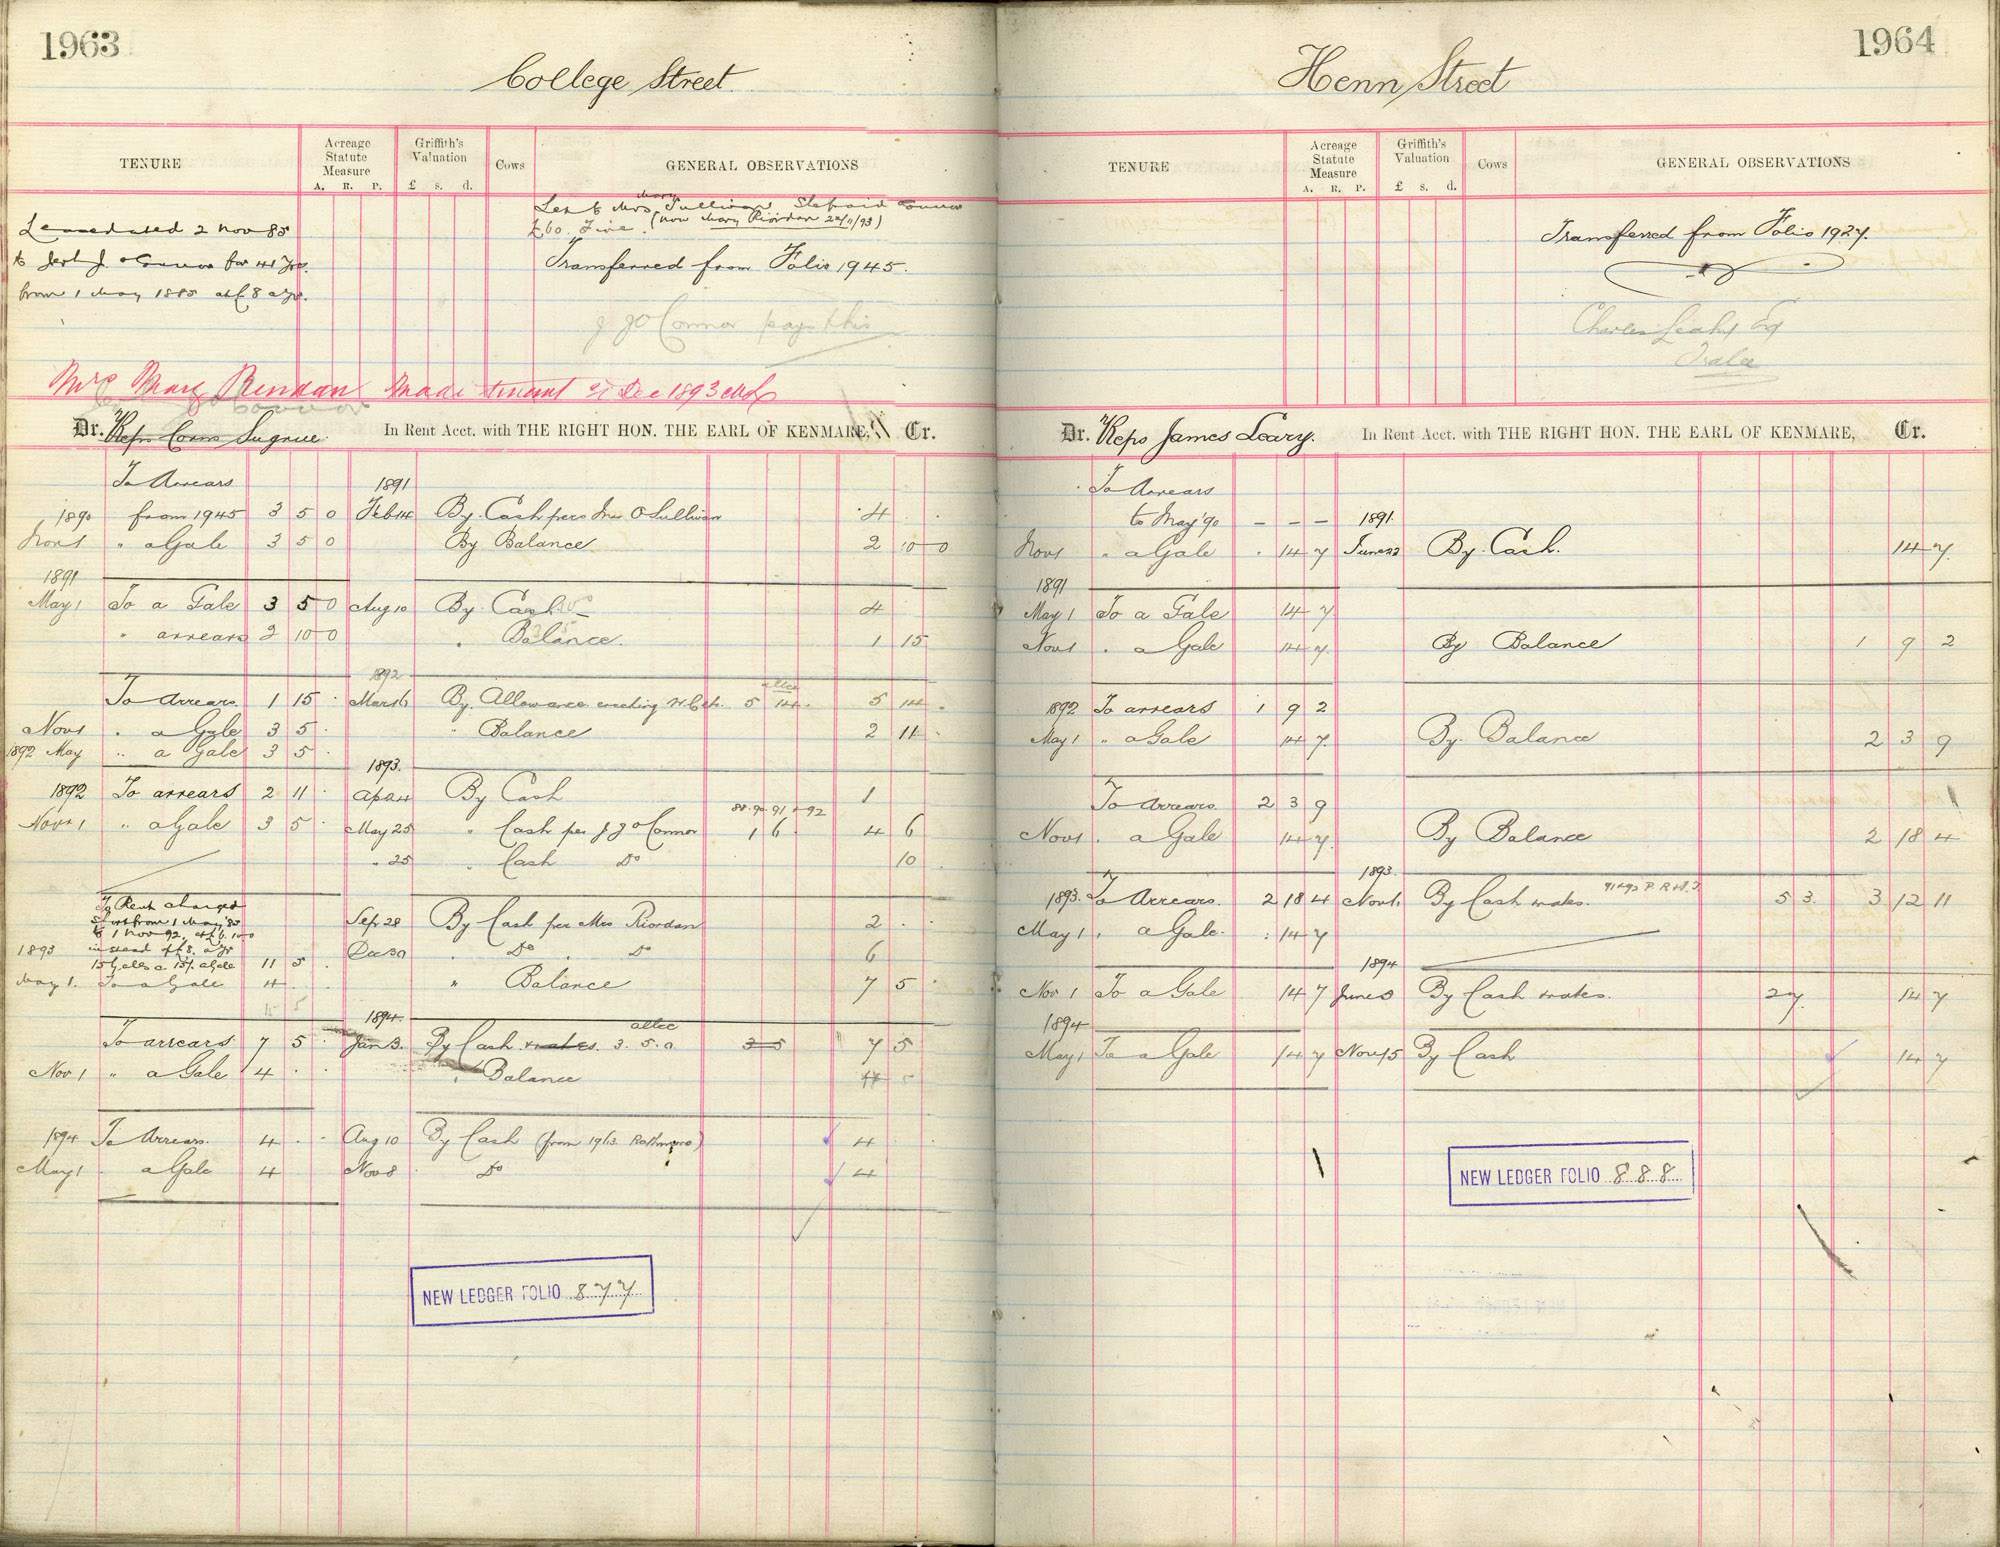 1963
College Street
TENURE
Acreage Statute Measure
A. R. P.
Griffith's Valuation
£ s. d.
Cows
GENERAL OBSERVATIONS
Let to Mrs Mary Sullivan
£60. Fine. (now Mary Riordan 22/11/93)
Lease dated 2 Nov 85
to Jerh J. O'Connor for 41 Yrs.
from 1 May 1885 at £8 a yr.
Transferred from Folio 1945.
J JO Connor pays this
Mrs Mary Riordan made tenant 21 Dec 1893
Dr. Reps Corns Sugrue. In Rent Acct. with THE RIGHT HON. THE EARL OF KENMARE, Cr.
To Arrears 1891
1890 from 1945 3 5 0 Feb 14 By Cash per Mrs O'Sullivan 4 . .
Nov 1 " a Gale 3 5 0 By Balance 2 10 0
1891
May 1 To a Gale 3 5 0 Aug 10 By Cash 4
" arrears 2 10 0 . Balance. 1 15
1892
To Arrears 1 15 . Mar 16 By Allowance erecting W.C. 5 14 . 5 14 .
Nov 1 . a Gale 3 5 . " Balance 2 11 .
1892 May " a Gale 3 5 .
1893.
1892 To arrears 2 11 . Ap 24 By Cash 1
88.90.91 + 92
Nov 1 " a Gale 3 5 . May 25 " Cash per J JO Connor 1 6 4 6
" 25 " Cash Do 10
To Rent charged
short from 1 May '85
to 1 Nov 92, at £6.10.0
1893 instead of £8. a yr
15 Gales @ 15/. a Gale 11 5 .
Sep 28 By Cash per Mrs Riordan 2 .
Dec 20 . Do . Do 6
May 1. To a Gale 4 " Balance 7 5 .
15 5
1894. altce
To arrears 7 5 . Jan 3. By Cash rates. 3. 5. 0 3 5 7 5
Nov 1 " a Gale 4 . . " Balance 4
1894 To Arrears. 4 . . Aug 10 By Cash (from 1963 Rathmore) 4
May 1 a Gale 4 Nov 8 Do 4
NEW LEDGER FOLIO 877
1964
Henn Street
TENURE
Acreage Statute Measure
A. R. P.
Griffith's Valuation
£ s. d.
Cows
GENERAL OBSERVATIONS
Transferred from Folio 1927.
Charles Leahy Esq
Tralee
Dr. Reps James Leary. In Rent Acct. with THE RIGHT HON. THE EARL OF KENMARE, Cr.
To Arrears
to May '90 – – – 1891.
Nov 1 " a Gale . 14 7 June 23 By Cash. 14 7
1891
May 1 To a Gale 14 7
Nov 1 . a Gale 14 7 By Balance 1 9 2
1892 To arrears 1 9 2
May 1 " a Gale 14 7 By Balance 2 3 9
To Arrears 2 3 9
Nov 1 . a Gale 14 7 By Balance 2 18 4
1893.
1893. To Arrears. 2 18 4 Nov 1 By Cash rates. 5 3. 3 12 11
May 1 . a Gale. 14 7
1894
Nov 1 To a Gale 14 7 June 5 By Cash rates. 2 7. 14 7
1894
May 1 To a Gale 14 7 Nov 15 By Cash 14 7
NEW LEDGER FOLIO 888